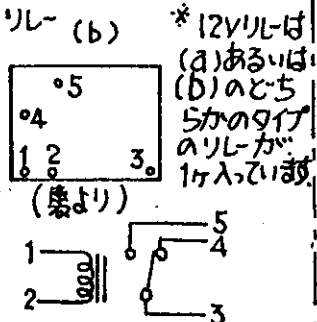 リレー (b)
※12Vリレーは
(a)あるいは
(b)のどち
らかのタイプ
のリレーが
1ヶ入っています
5
4
1 2 3
(裏より)
1
2
5
4
3